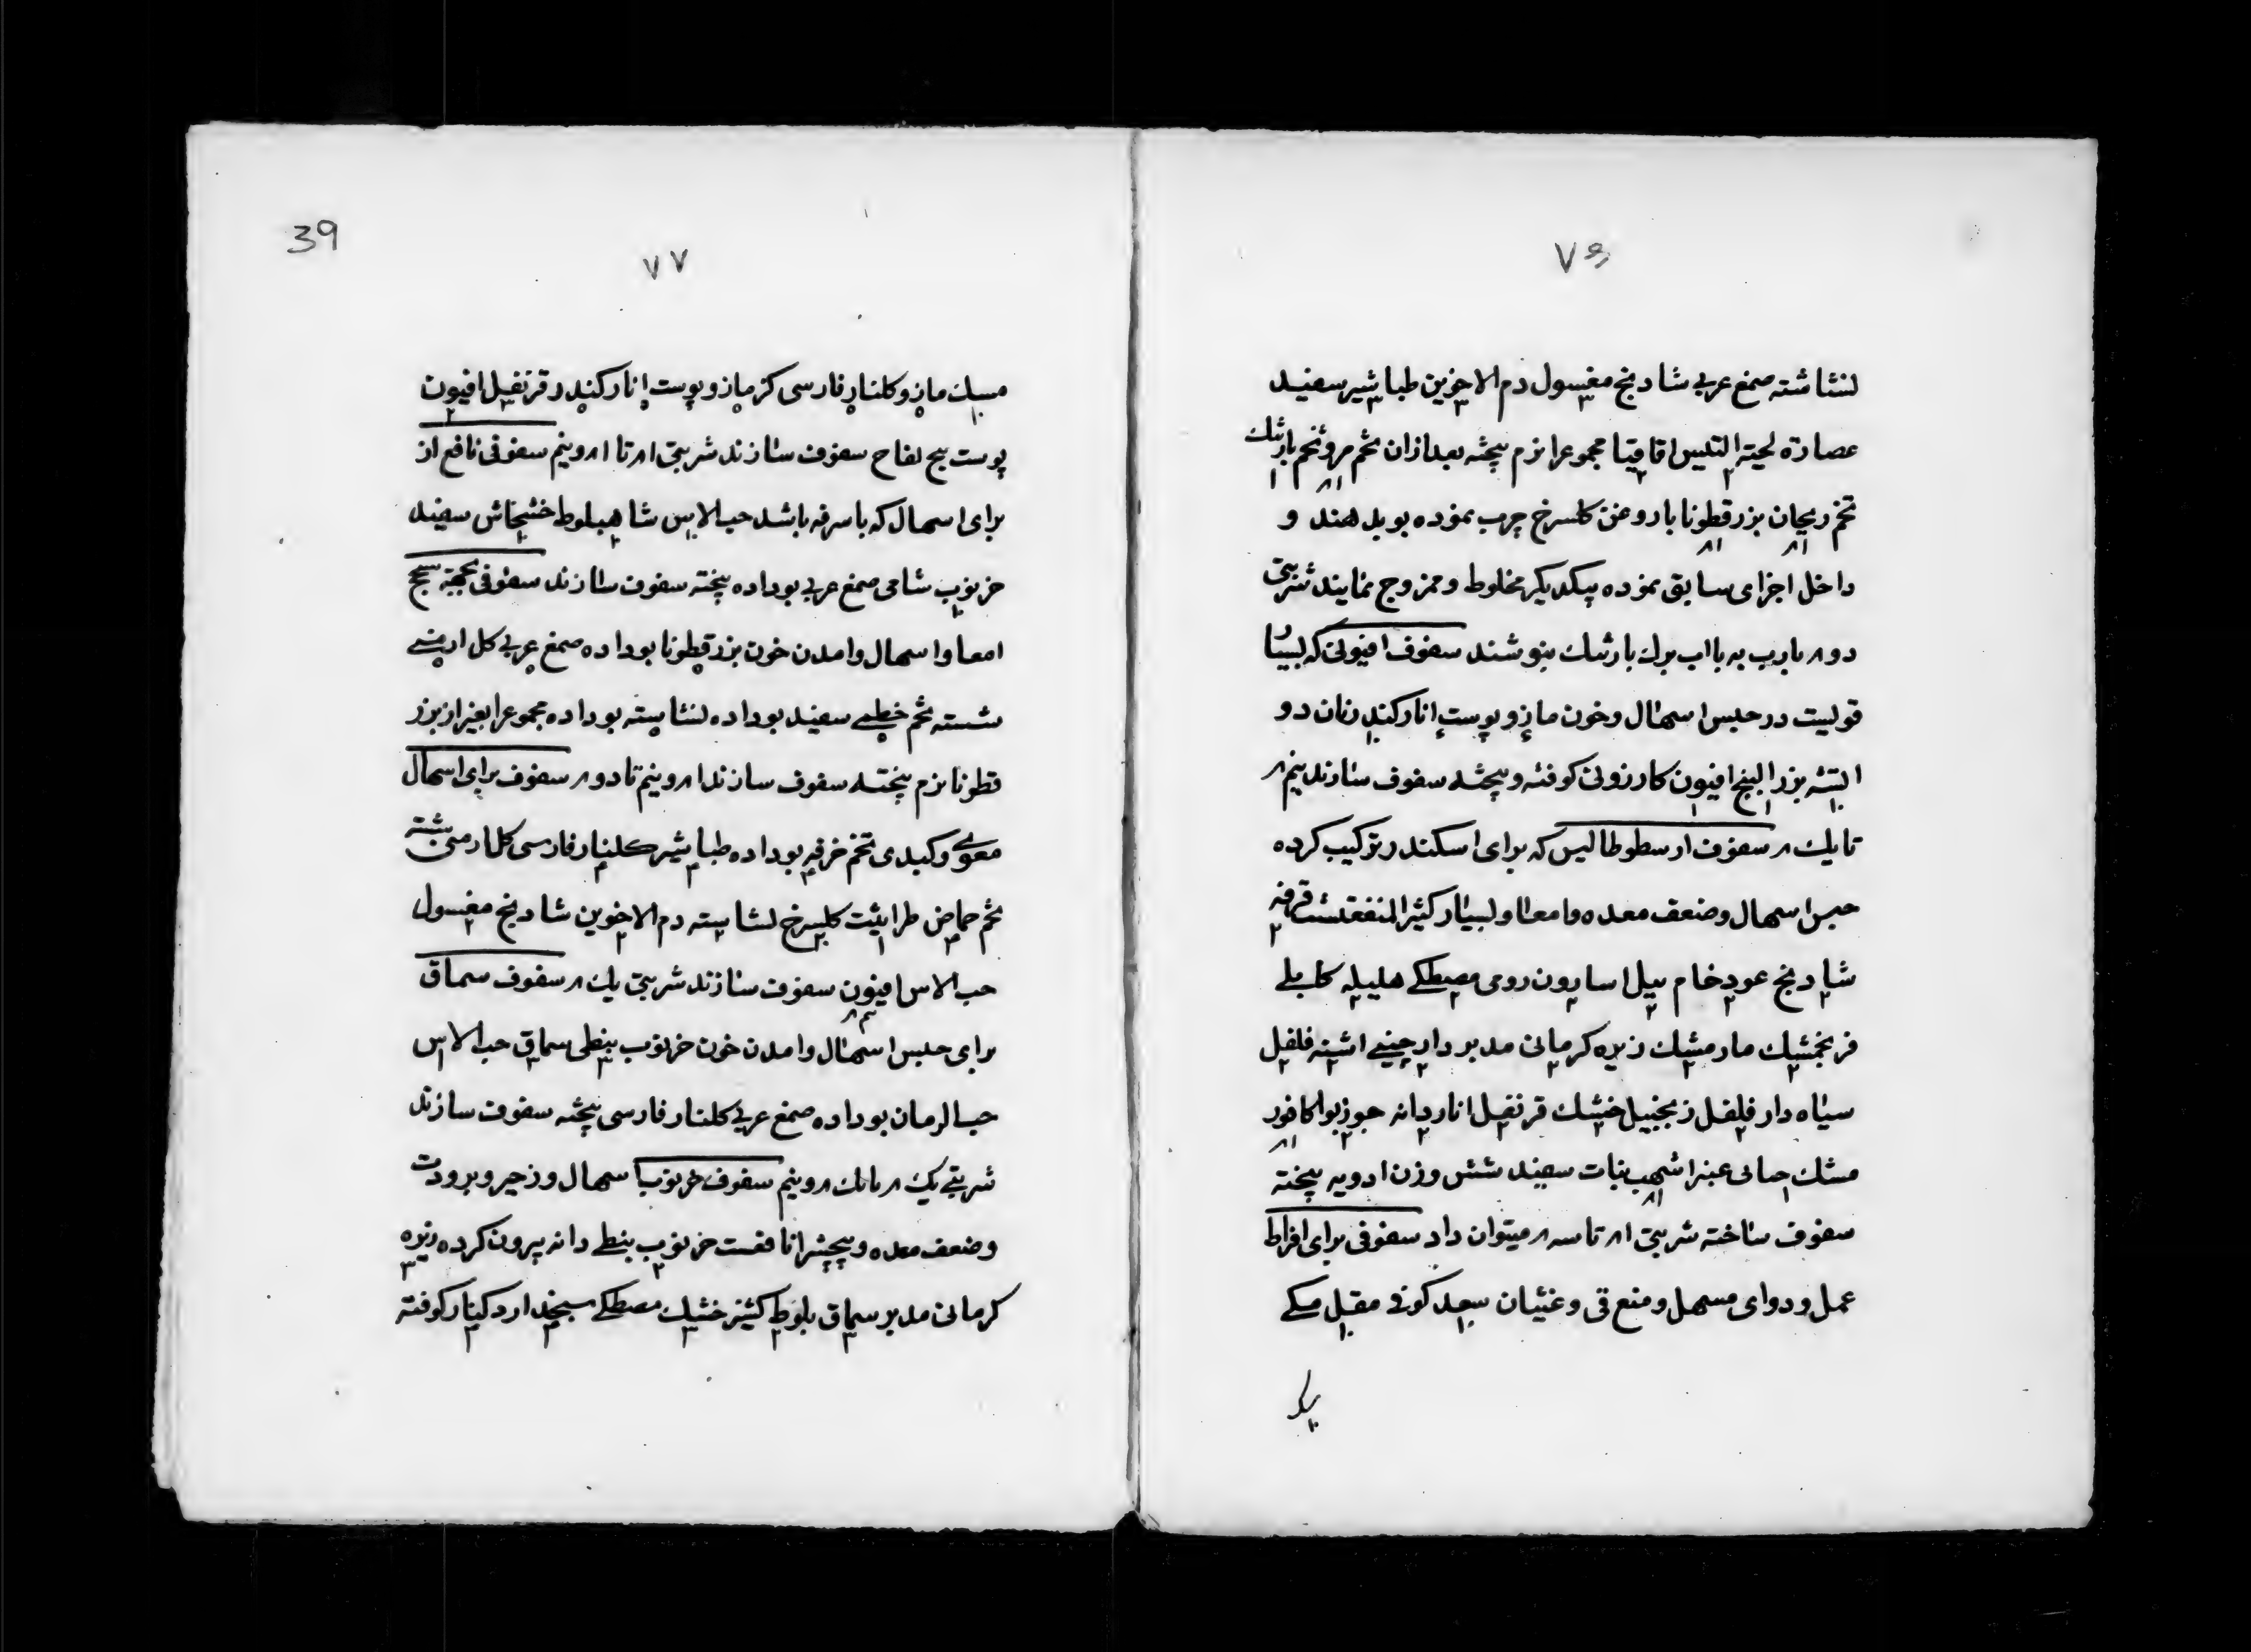 ۷۶
لنشاشته صمغ عربی شادنج مغسول دم الاخوین طباشیر سفید
عصارة لحیة التیس اقاقیا مجموعرا نرم پیخته بعد ازان تخم مرو تخم بارتنك
تخم ریحان بزرقطونا باروغن کلسرخ چرب نموده بوبدهند و
داخل اجزای سابق نموده بیکدیکر مخلوط و ممزوج نمایند شربتی
دو۸ بارب به بااب برك بارتنك بنوشند سفوف افیونی که بسیا
قولیست در حبس اسهال وخون مازو پوست انار کندر نان دو
البته بزر البنج افیون کارزونی کوفته و پیخته سفوف سازند نیم ۸
تایك ۸ سفوف ارسطوطالیس که برای اسکندر ترکیب کرده
حبس اسهال وضعف معده وامعا وبسیار کثیر المنفعتست قرفه
شادنج عود خام بیل اسارون رومی مصطکی هلیله کابلی
فرنجمشك مارمشك زیره کرمانی مدبر دارچینی اشنه فلفل
سیاه دارفلفل زنجبیل خشك قرنفل اناردانه جوزبوا کافور
مشك عنبر اشهب نبات سفید شش وزن ادویه پیخته
سفوف ساخته شربتی ۸۱ تاسه ۸ میتوان داد سفوفی برای افراط
عمل ودوای مسهل ومنع قی وغثیان سعد کوفی مقل مکی
39
۷۷
مسك مازو کلنار فارسی کزمازو پوست انار کندر قرنفل افیون
پوست بیج لفاح سفوف سازند شربتی ۸۱ تا ۸۱ ونیم سفوفی نافع از
برای اسهال که باسرفه باشد حب الاس شاهبلوط خشخاش سفید
خرنوب شامی صمغ عربی بوداده پیخته سفوف سازند سفوفی بجهة سحج
امعا واسهال وامدن خون بزرقطونا بوداده صمغ عربی کل ارمنی
شسته تخم خطمی سفید بوداده لنشاسته بوداده مجموعرا بغیر از بزر
قطونا نرم پیخته سفوف سازند ۸۱ ونیم تا دو ۸ سفوف برای اسهال
معوی وکبدی تخم خرفه بوداده طباشیر کلنار فارسی کل ارمنی شسته
تخم حماض طراثیث کلسرخ لنشاسته دم الاخوین شادنج مغسول
حب الاس افیون سفوف سازند شربتی یك ۸ سفوف سماق
برای حبس اسهال وامدن خون خرنوب نبطی سماق حب الاس
حب الرمان بوداده صمغ عربی کلنار فارسی پیخته سفوف سازند
شربتی یك ۸ تایك ۸ ونیم سفوف خرنوب اسهال وزحیر وبرودت
وضعف معده وپیچش را نافعست خرنوب نبطی دانه بیرون کرده زیره
کرمانی مدبر سماق بلوط کشنیز خشك مصطکی سنجد ارد کنار کوفته